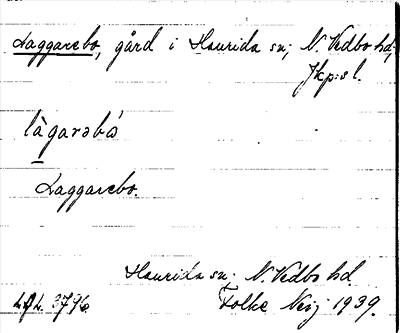 Laggarebo, gård i Haurida sn; N. Vedbo hd;
Jkp:s l.
làgarəbò
Laggarebo.
Haurida sn; N. Vedbo hd.
3796. Folke Neij 1939.